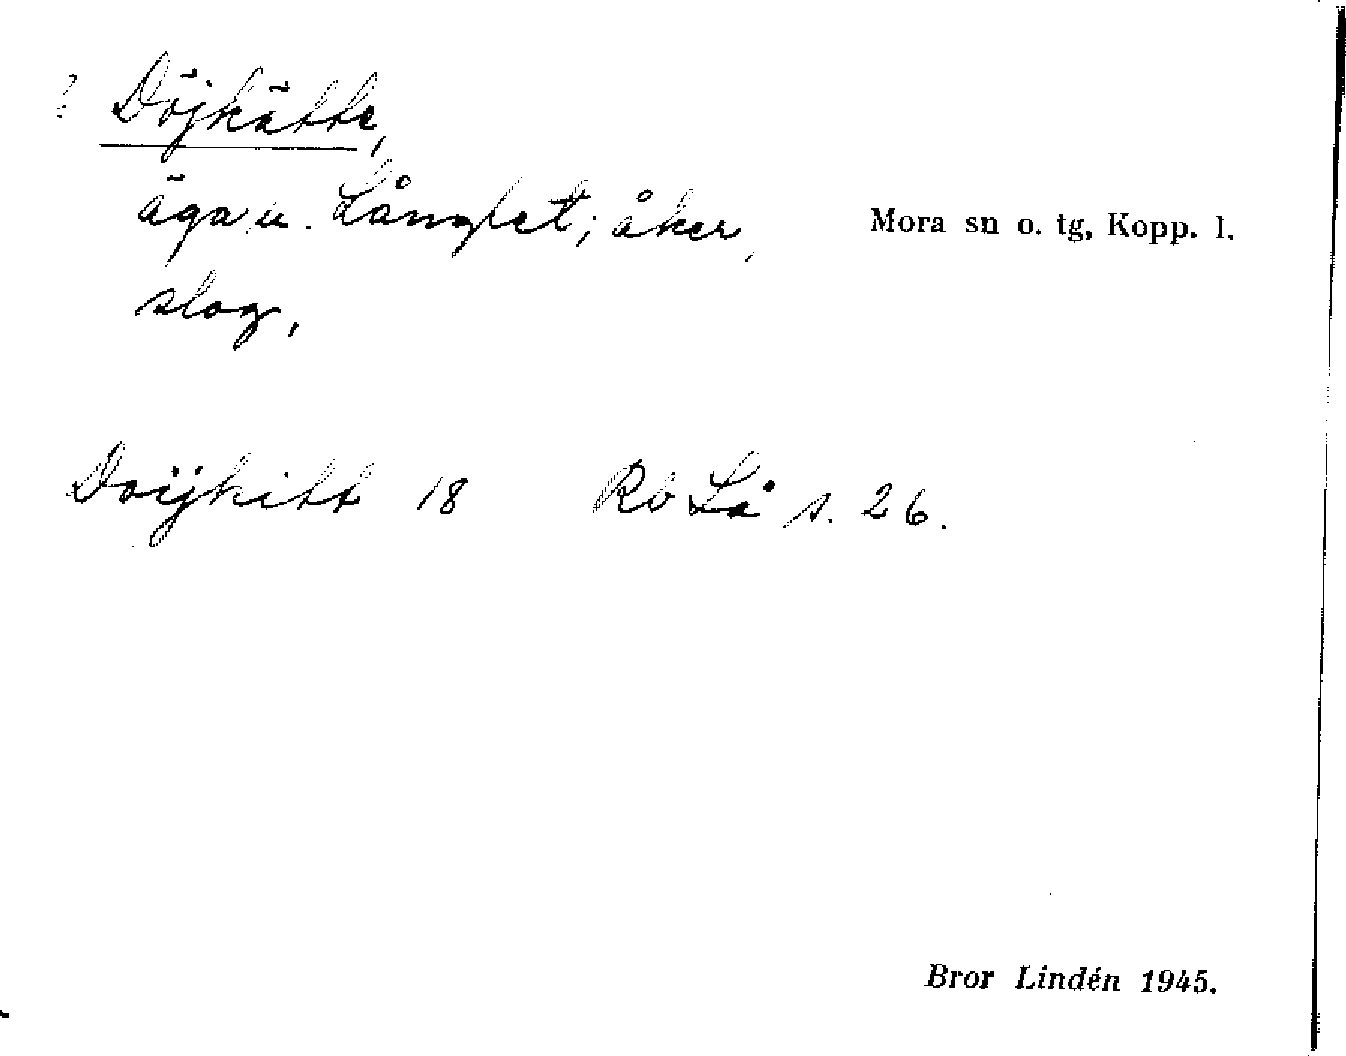 ? Döjkätte,
äga u. Långlet; åker,
slog,
Mora sn o. tg, Kopp. l.
Doijkitt 18 Rb Lå s. 26.
Bror Lindén 1945.